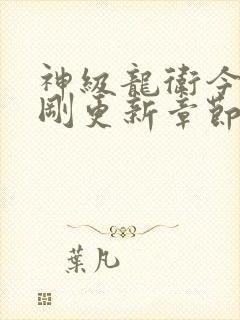 神級龍衛今
剛更新章節
葉凡